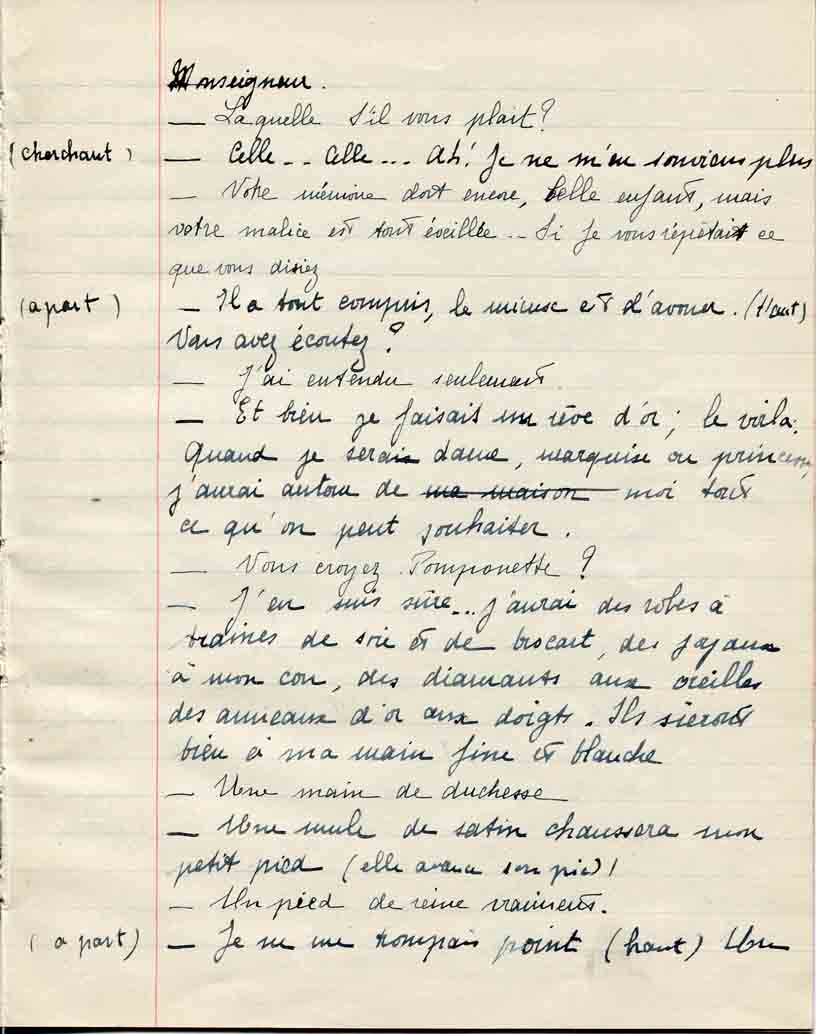 Monseigneur.
— Laquelle s'il vous plait?
(cherchant) — Celle -- Celle --- Ah! Je ne m'en souviens plus
— Votre mémoire dort encore, belle enfant, mais
votre malice est tout éveillée -- Si je vous répétais ce
que vous disiez
(a part) — Il a tout compris, le mieux est d'avouer. (Haut)
Vous avez écoutez?
— J'ai entendu seulement
— Et bien je faisais un rêve d'or; le voila:
Quand je serais dame, marquise ou princesse,
j'aurai autour de ma maison moi tout
ce qu'on peut souhaiter.
— Vous croyez Pomponette?
— J'en suis sûre... j'aurai des robes à
traines de soie et de brocart, des joyaux
à mon cou, des diamants aux oreilles
des anneaux d'or aux doigts. Ils sieront
bien à ma main fine et blanche
— Une main de duchesse
— Une mule de satin chaussera mon
petit pied (elle avance son pied)
— Un pied de reine vraiment.
(a part) — Je ne me trompais point (haut) Une